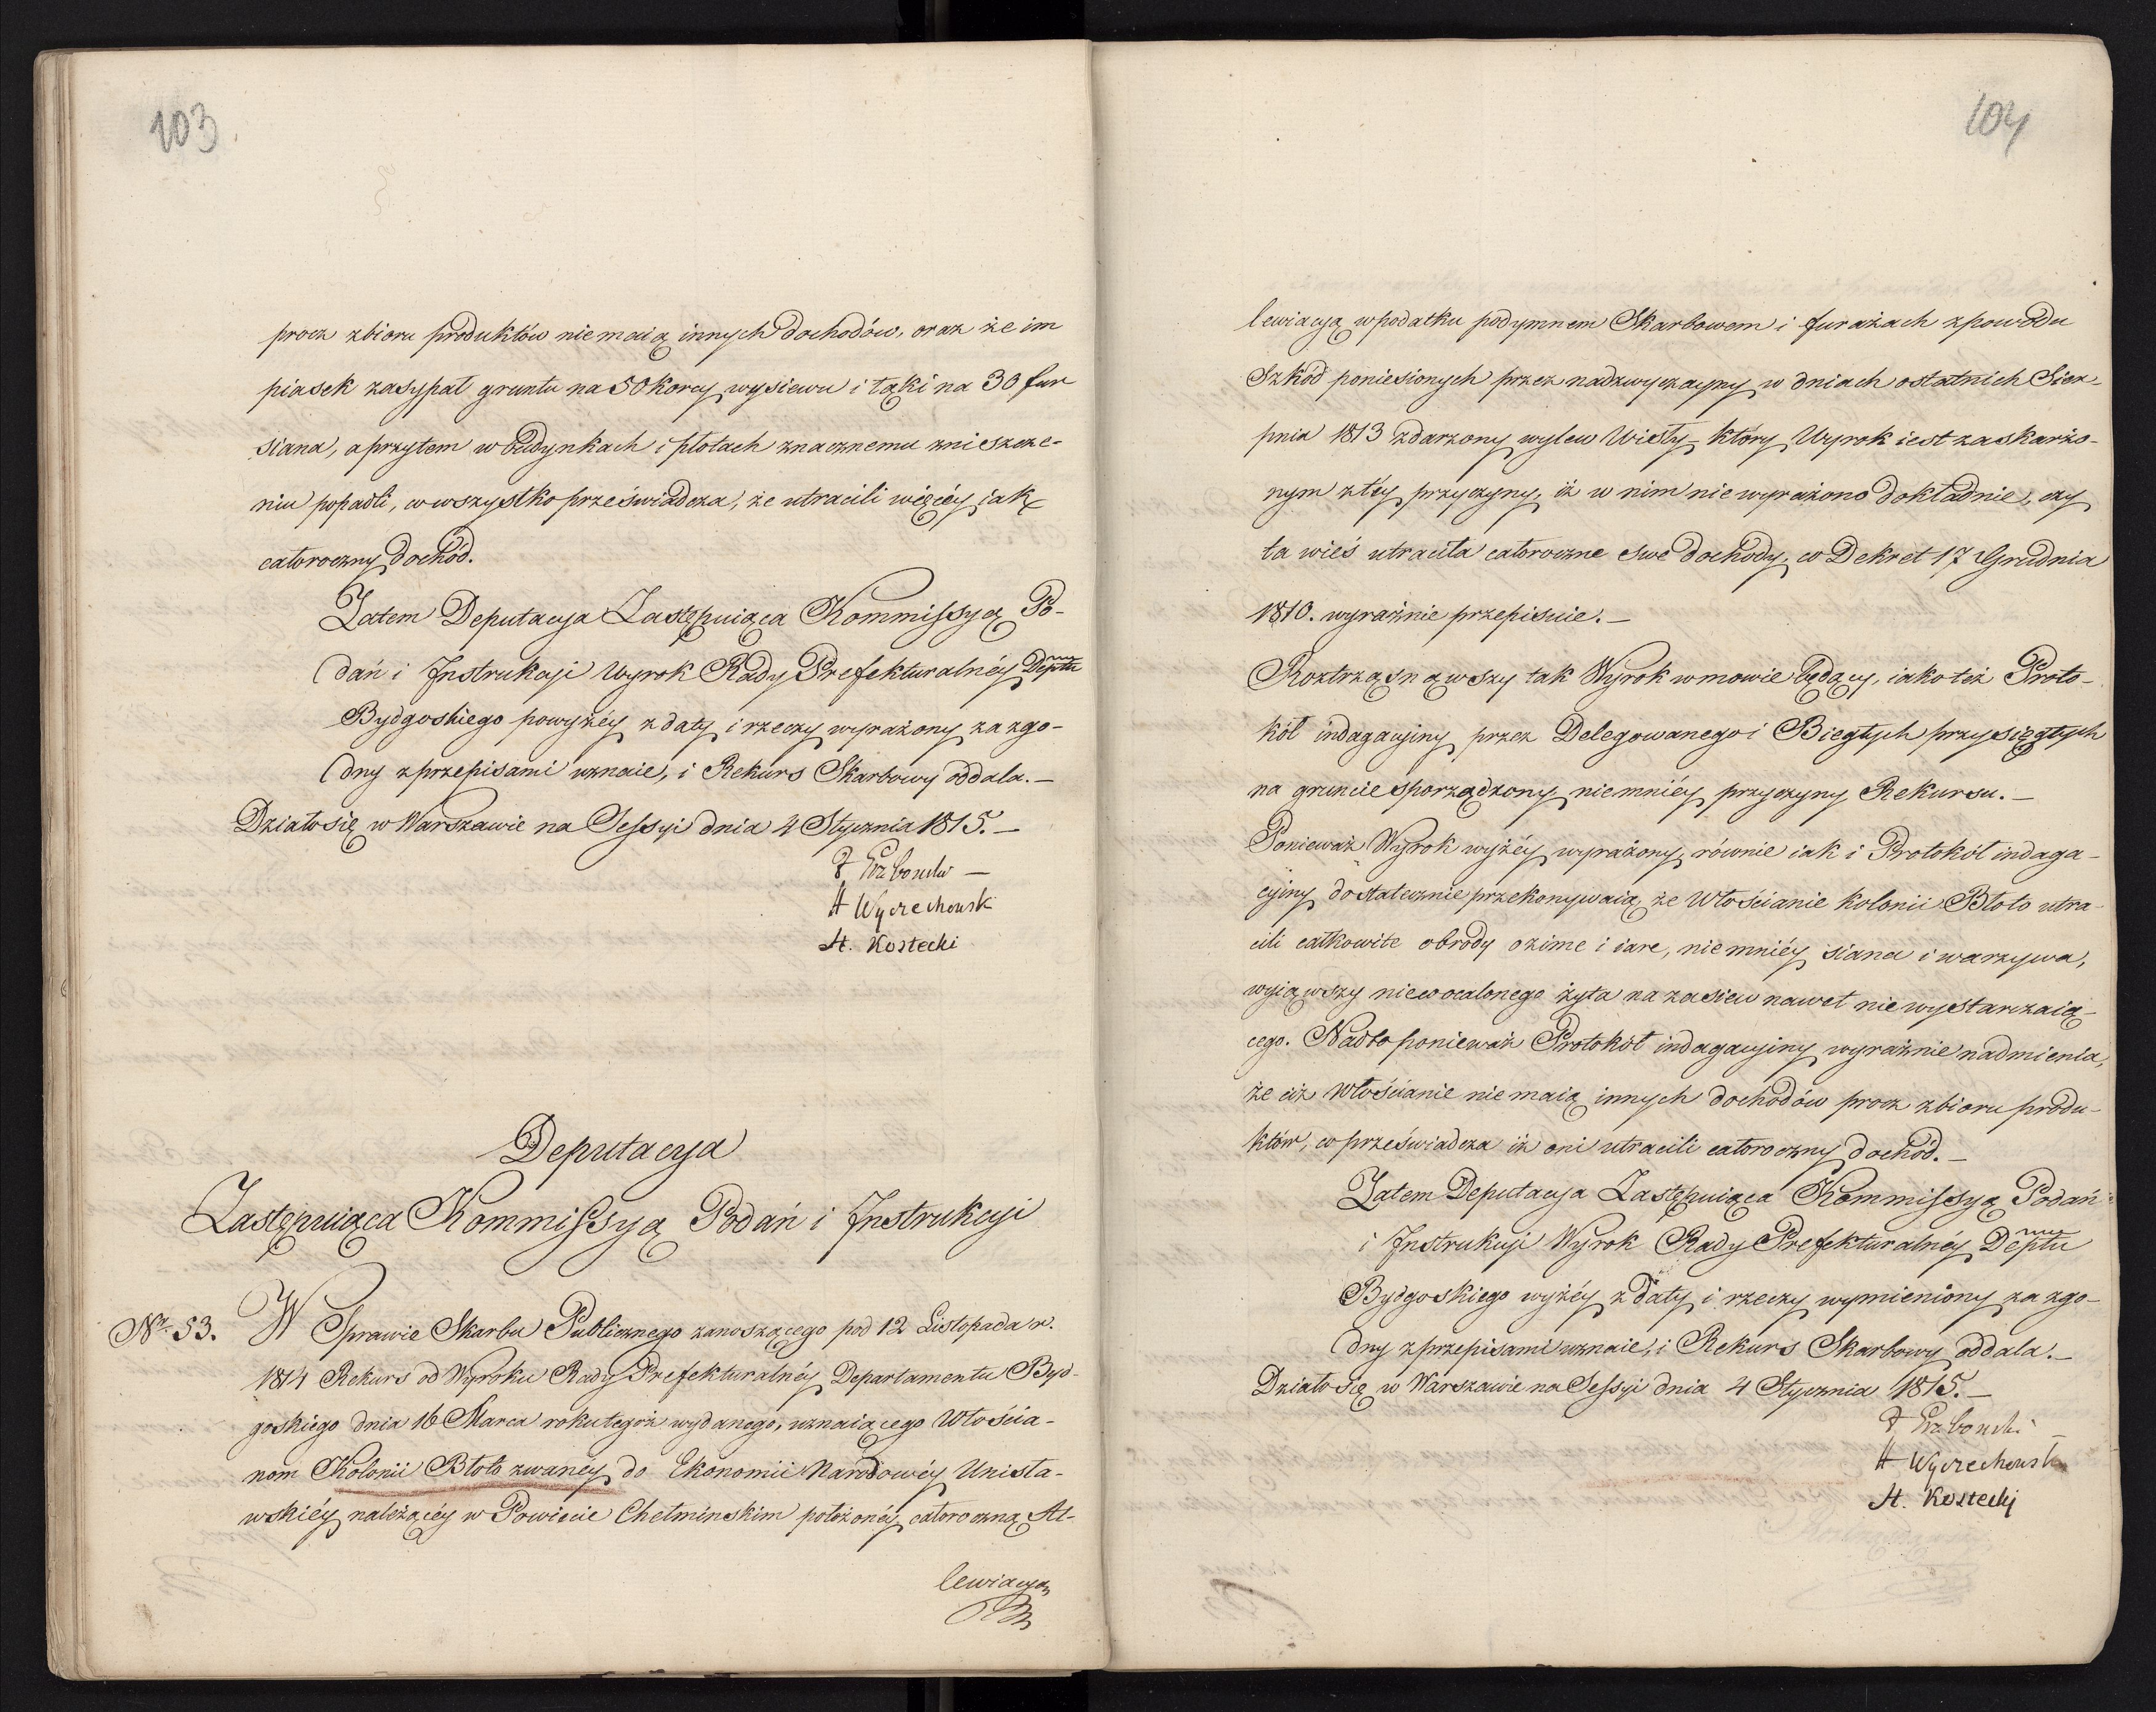 103.
procz zbioru produktów nie maią innych dochodów, oraz że im
piasek zasypał gruntu na 50 korcy wysiewu i łąki na 30 fur
siana, a przytem w budynkach i płotach znacznemu zniszcze-
niu popadli, co wszystko przeświadcza, że utracili więcéy jak
całoroczny dochód.
Zatem Deputacya Zastępuiąca Kommissyą Po-
dań i Instrukcji Wyrok Rady Prefekturalnéy Deptu
Bydgoskiego powyżéy z daty i rzeczy wyrażony za zgo-
dny z przepisami uznaie, i Rekurs Skarbowy oddala.—
Działo się w Warszawie na Sessyi dnia 4 Stycznia 1815.—
A Wyczechowsk
A. Kostecki
Deputacya
Zastępuiąca Kommissyą Podań i Instrukcyi
Nr. 53. W Sprawie Skarbu Publicznego zanoszącego pod 12 Listopada r.
1814 Rekurs od Wyroku Rady Prefekturalnéy Departamentu Byd-
goskiego dnia 16 Marca roku tegoż wydanego, uznaiącego Włościa-
nom Kolonii Błoto zwanéy do Ekonomii Narodowéy Unisła-
wskiéy należącéy w Powiecie Chełmińskim położonéy całoroczną Al-
lewiacyą
104
lewiacyą w podatku podymnem Skarbowem i furażach z powodu
Szkód poniesionych przez nadzwyczayny w dniach ostatnich Sier-
pnia 1813 zdarzony wylew Wisły, który Wyrok iest zaskarżo-
nym z téy przyczyny, iż w nim nie wyrażono dokładnie, czy
ta wieś utraciła całoroczne swe dochody, co Dekret 17 Grudnia
1810. wyraźnie przepisuie.—
Roztrząsnąwszy tak Wyrok w mowie będący, iako też Proto-
kół indagacyiny przez Delegowanego i Biegłych przysięgłych
na gruncie sporządzony niemniéy przyczyny Rekursu.—
Ponieważ Wyrok wyżéy wyrażony, równie iak i Protokół indaga-
cyiny dostatecznie przekonywaią, że Włościanie kolonii Błoto utra-
cili całkowite obrody ozime i iare, niemniéy siana i warzywa,
wyiąwszy nieco ocalonego żyta na zasiew nawet nie wystarczaią-
cego. Nadto ponieważ Protokół indagacyiny wyraźnie nadmienia,
że ciż Włościanie nie maią innych dochodów procz zbioru produ-
któw, co przeświadcza iż oni utracili całoroczny dochód.—
Zatem Deputacya Zastępuiąca Kommissyą Podań
i Instrukcyi Wyrok Rady Prefekturalnéy Deptu
Bydgoskiego wyżéy z daty i rzeczy wymieniony za zgo-
dny z przepisami uznaie, i Rekurs Skarbowy oddala.—
Działo się w Warszawie na Sessyi dnia 4 Stycznia 1815.—
A Wyczechowsk
A. Kostecki